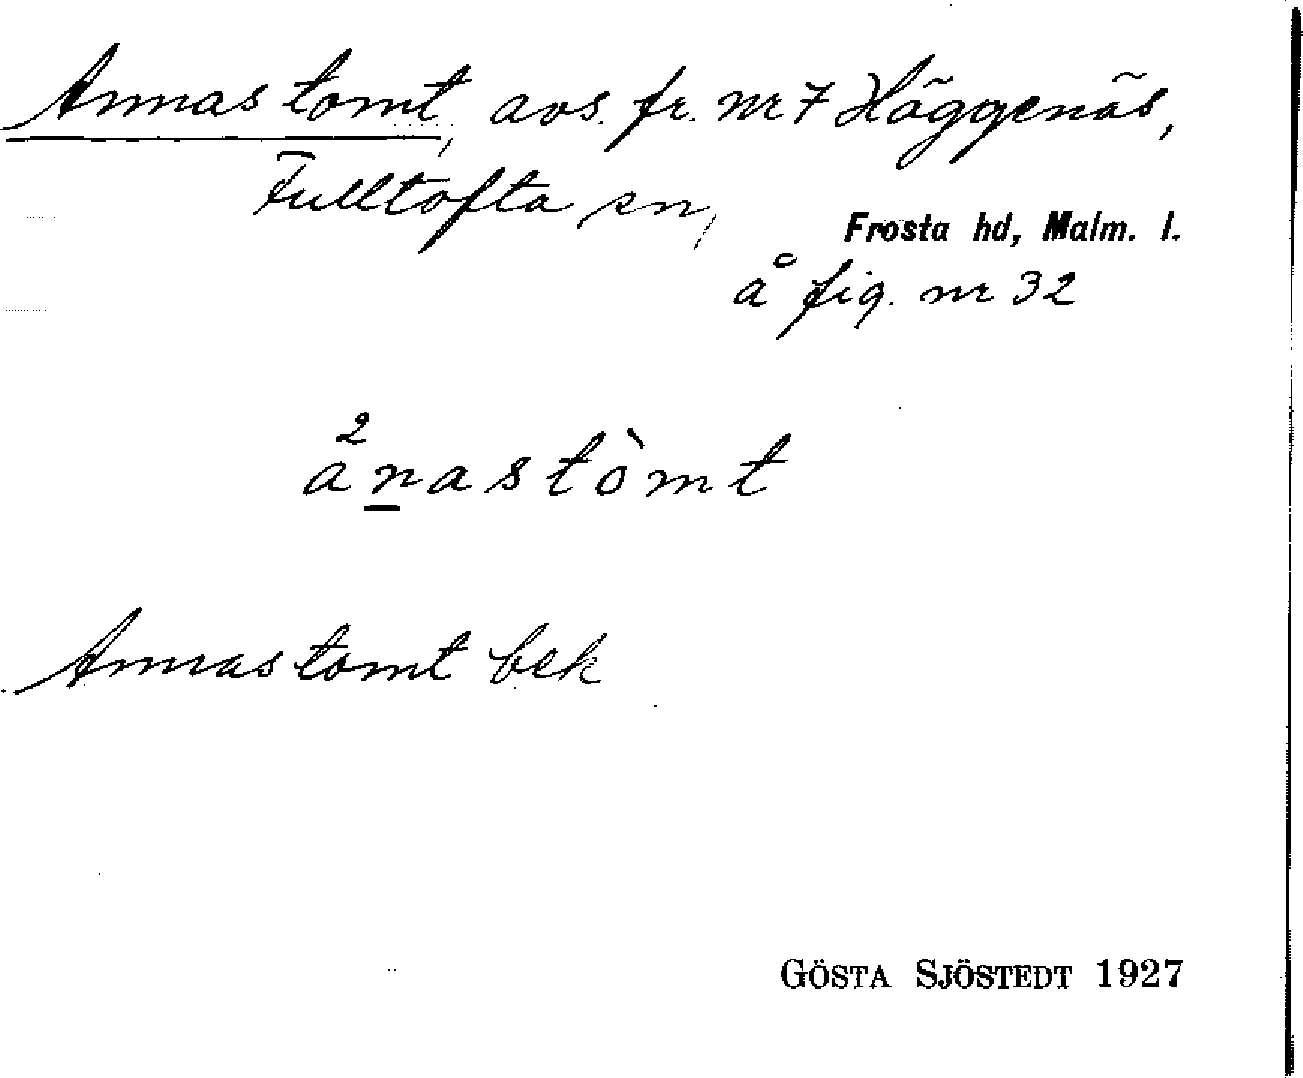 Annas tomt, avs. fr. nr 7 Häggenäs,
Fulltofta sn,
Frosta hd, Malm. l.
å fig. nr 32
a²nastòmt
Annas tomt bek
GÖSTA SJÖSTEDT 1927